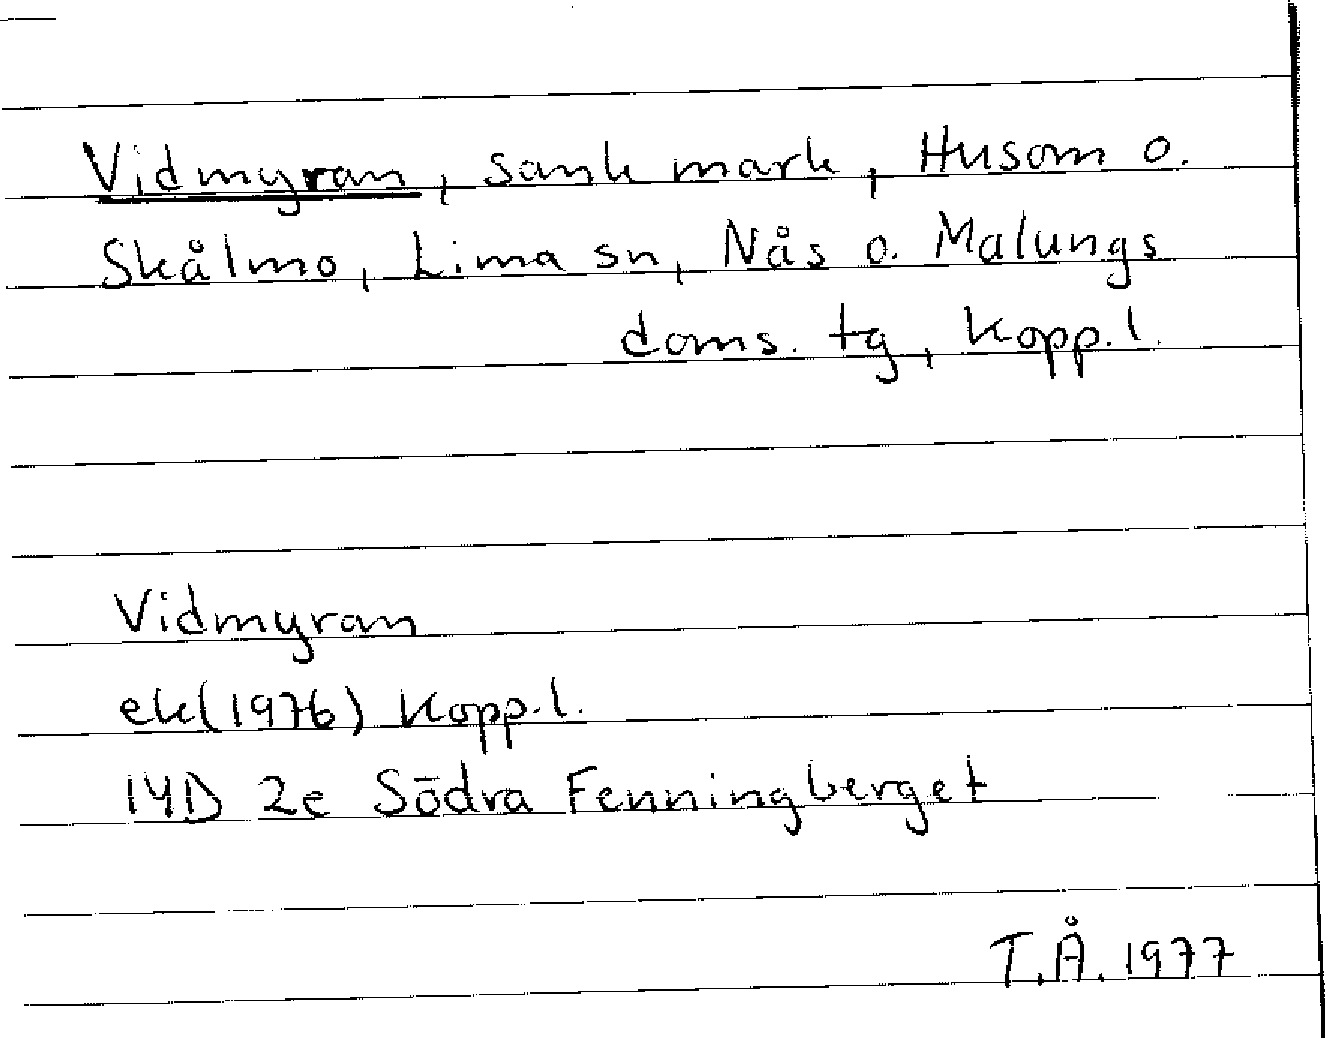 Vidmyran, sank mark, Husom o.
Skålmo, Lima sn, Nås o. Malungs
doms. tg, Kopp. l.
Vidmyran
ek (1976) Kopp. l.
14D 2e Södra Fenningberget
T.Å. 1977